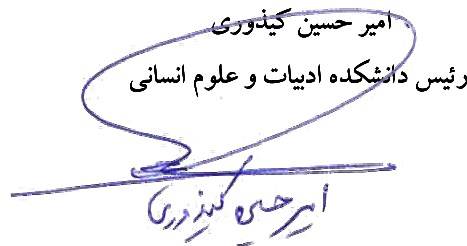 امیر حسین کیذوری
رئیس دانشکده ادبیات و علوم انسانی
امیر حسین کیذوری